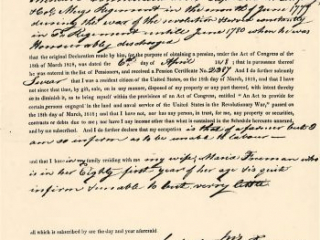 in the month of June 1777
during the war of the revolution & served constantly
in Regiment untill June 1780 when he was
Honourably discharged
that the original Declaration made by him, for the purpose of obtaining a pension, under the Act of Congress of the
18th of March, 1818, was dated the 6th day of April 1818; that in pursuance thereof
his name was entered in the list of Pensioners, and received a Pension Certificate No. And I do further solemnly
Swear that I was a resident citizen of the United States, on the 18th day of March, 1818; and that I have
not since that time, by gift, sale, or in any manner, disposed of my property or any part thereof, with intent thereby
so to diminish it, as to bring myself within the provisions of an Act of Congress, entitled "An Act to provide for
certain persons engaged in the land and naval service of the United States in the Revolutionary War," passed on
the 18th day of March, 1818; and that I have not, nor has any person, in trust, for me, any property, or securities,
contracts or debts due to me, nor have I any income other than what is contained in the Schedule hereunto annexed,
and by me subscribed. And I do further declare that my occupation is that of a farmer but I
am so infirm as to be unable to labour
and I have in my family residing with me my wife, Maria Freeman who
is in her Eighty first year of her age & is quite
infirm & unable to but very little
all which is subscribed by me the day and year aforesaid